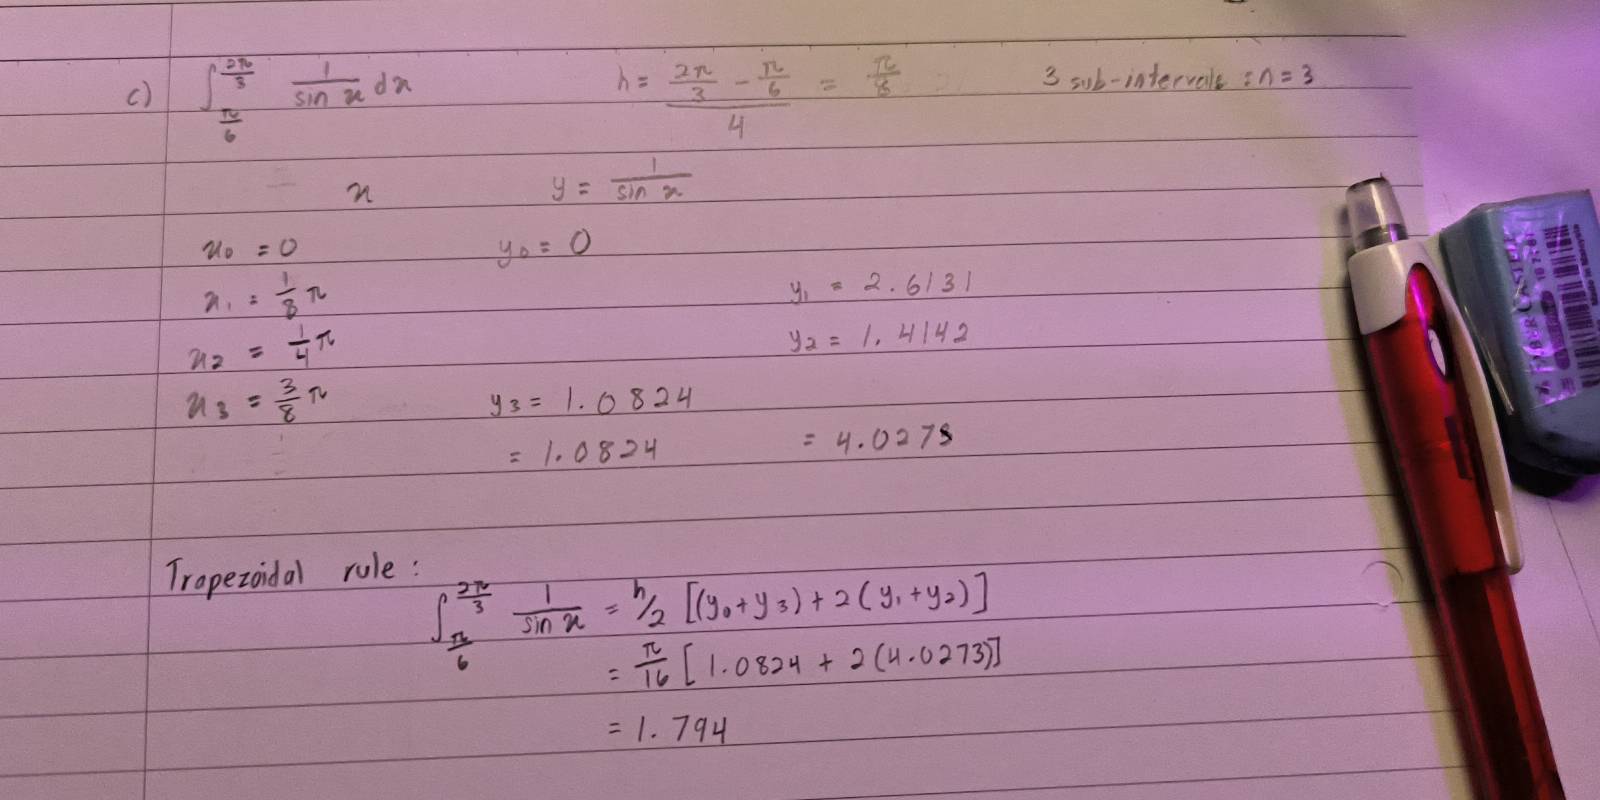 c) ∫_{π/6}^{2π/3} 1/sin x dx h = (2π/3 - π/6)/4 = π/8 3 sub-intervals : n = 3
x y = 1/sin x
x₀ = 0 y₀ = 0
x₁ = 1/8 π y₁ = 2.6131
x₂ = 1/4 π y₂ = 1.4142
x₃ = 3/8 π y₃ = 1.0824
= 1.0824 = 4.0273
Trapezoidal rule :
∫_{π/6}^{2π/3} 1/sin x = h/2 [(y₀ + y₃) + 2(y₁ + y₂)]
= π/16 [1.0824 + 2(4.0273)]
= 1.794
Made in Malaysia